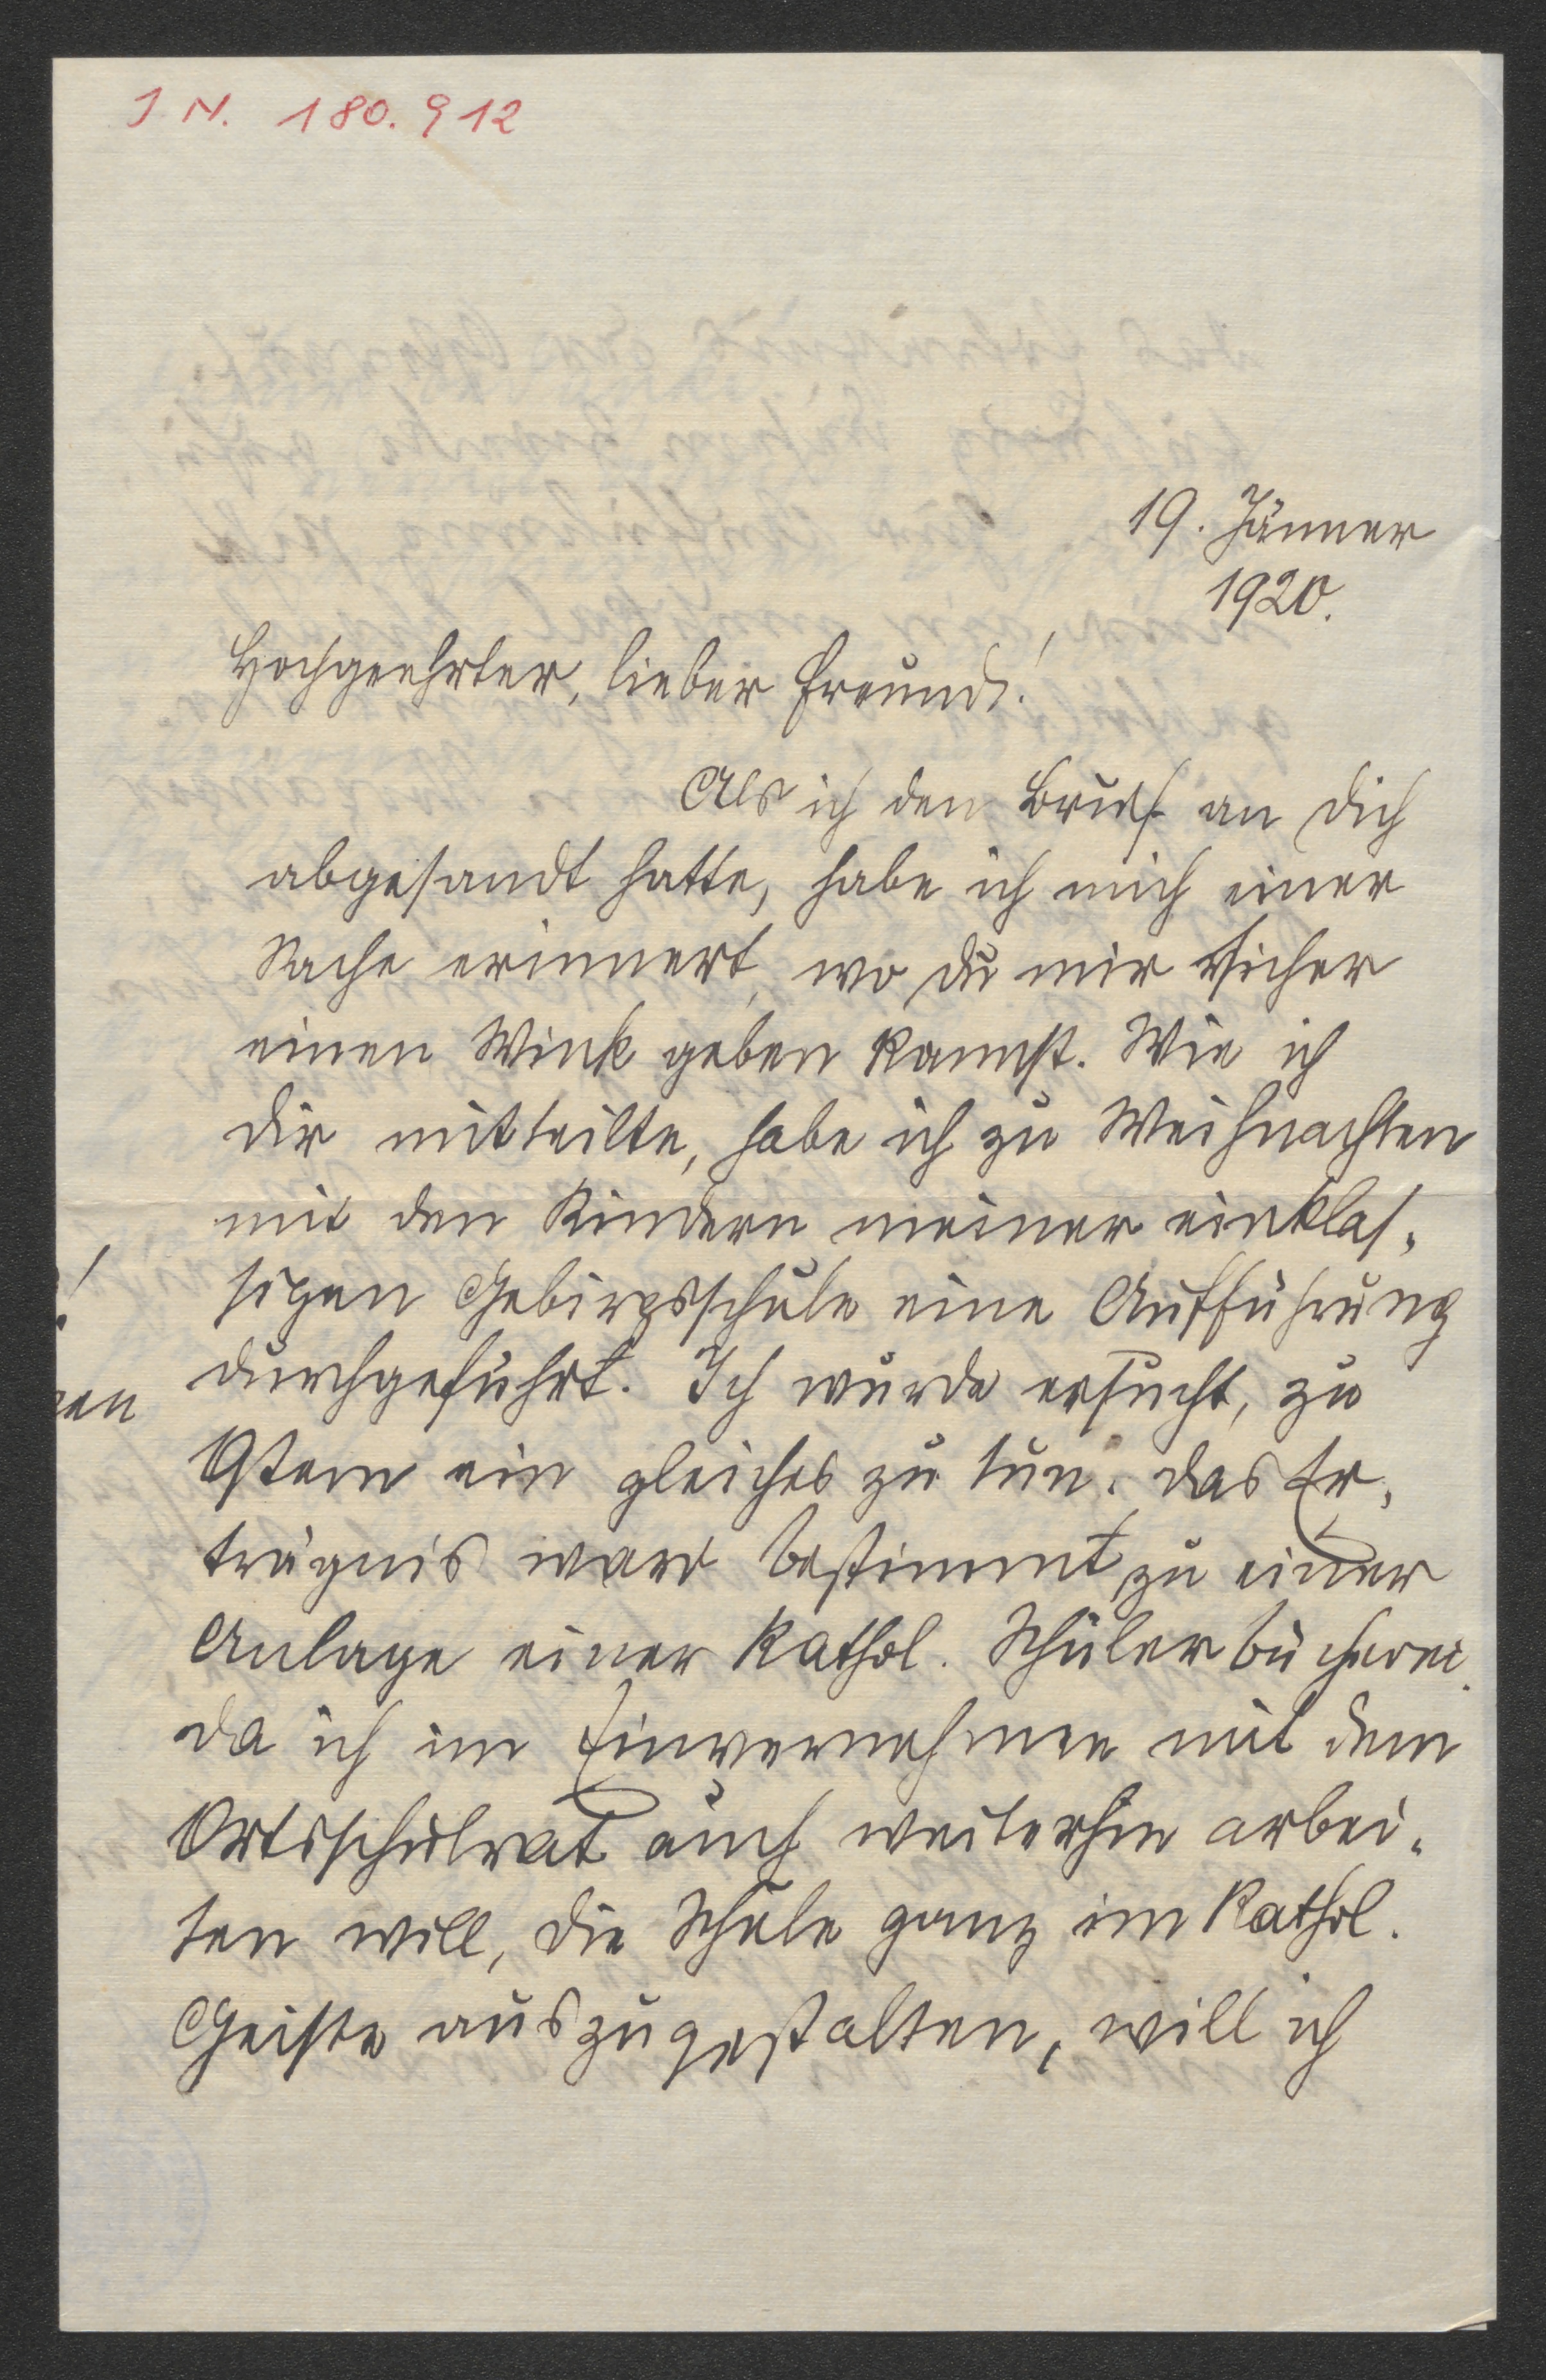 J N. 180.912
19. Jänner
1920.
Hochgeehrter, lieber Freund!
Als ich den Brief an Dich
abgesandt hatte, habe ich mich einer
Sache erinnert, wo du mir sicher
einen Wink geben kannst. Wie ich
dir mitteilte, habe ich zu Weihnachten
mit den Kindern meiner einklas-
sigen Gebirgsschule eine Aufführung
durchgeführt. Ich wurde ersucht, zu
Ostern ein gleiches zu tun. Das Er-
trägnis war bestimmt zu einer
Anlage einer kathol. Schülerbücherei.
Da ich im Einvernehmen mit dem
Ortsschulrat auch weiterhin arbei-
ten will, die Schule ganz im kathol.
Geiste auszugestalten, will ich